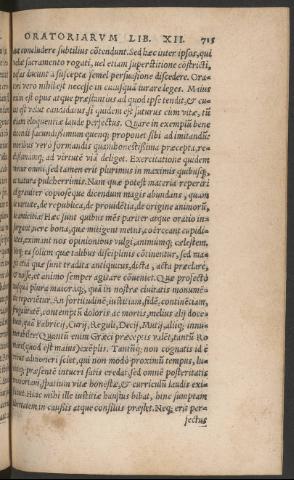 ORATORIARVM LIB. XII. 715
aut concludere subtilius cōtendunt. Sed hæc inter ipsos, qui
uelut sacramento rogati, uel etiam superstitione cōstricti,
nefas ducunt à suscepta semel persuasione discedere. Ora-
tori vero nihil est necesse in cuiusquā iurare leges. Maius
enim est opus atque præstantius ad quod ipse tendit, & cu-
ius est velut candidatus, si quidem est futurus cùm vitæ, tū
etiam eloquentiæ laude perfectus. Quare in exemplū bene
dicendi facundissimum quenq; proponet sibi ad imitandū:
moribus vero formandis quàm honestissima præcepta, re-
ctissimamq; ad virtutē viā deliget. Exercitatione quidem
vtetur omni, sed tamen erit plurimus in maximis quibusq;
ac natura pulcherrimis. Nam quæ potest materia reperiri
ad grauiter copioseque dicendum magis abundans, quàm
de virtute, de republica, de prouidētia, de origine animorū,
de amicitia? Hæc sunt quibus mēs pariter atque oratio in-
surgunt, vere bona, quæ mitiget metus, coërceat cupidi-
tates, eximat nos opinionibus vulgi, animumq; cælestem.
Neq; ea solum quæ talibus disciplinis cōtinentur, sed ma-
gis etiā quæ sunt tradita antiquitus, dicta, ac facta præclare,
& nosse, et animo semper agitare cōueniet. Quæ profectò
nusquā plura maioraq;, quā in nostræ ciuitatis monumē-
tis reperiētur. An fortitudinē, iustitiam, fidē, continētiam,
frugalitatē, contemptū doloris ac mortis, melius alij doce-
bunt, quā Fabricij, Curij, Reguli, Decij, Mutij, alijq; innu-
merabiles? Quantū enim Græci præceptis valēt, tantū Ro-
mani, quod est maius, exēplis. Tantūq; non cognatis id è
rebus admoneri sciet, qui non modò proximū tempus, lu-
cemq; præsentē intueri satis credat, sed omnē posteritatis
memoriam, spatium vitæ honestæ, & curriculū laudis exi-
stimet. Hinc mihi ille iustitiæ haustus bibat, hinc sumptam
libertatem in causis atque consilijs præstet. Neq; erit per-
fectus